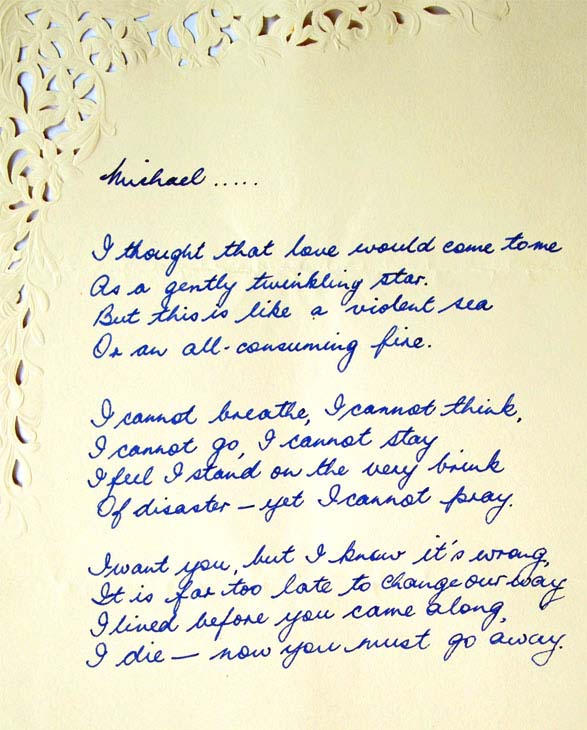 Michael .....
I thought that love would come to me
As a gently twinkling star.
But this is like a violent sea
Or an all-consuming fire.
I cannot breathe, I cannot think,
I cannot go, I cannot stay
I feel I stand on the very brink
Of disaster – yet I cannot pray.
I want you, but I know it's wrong,
It is far too late to change our way
I lived before you came along,
I die – now you must go away.